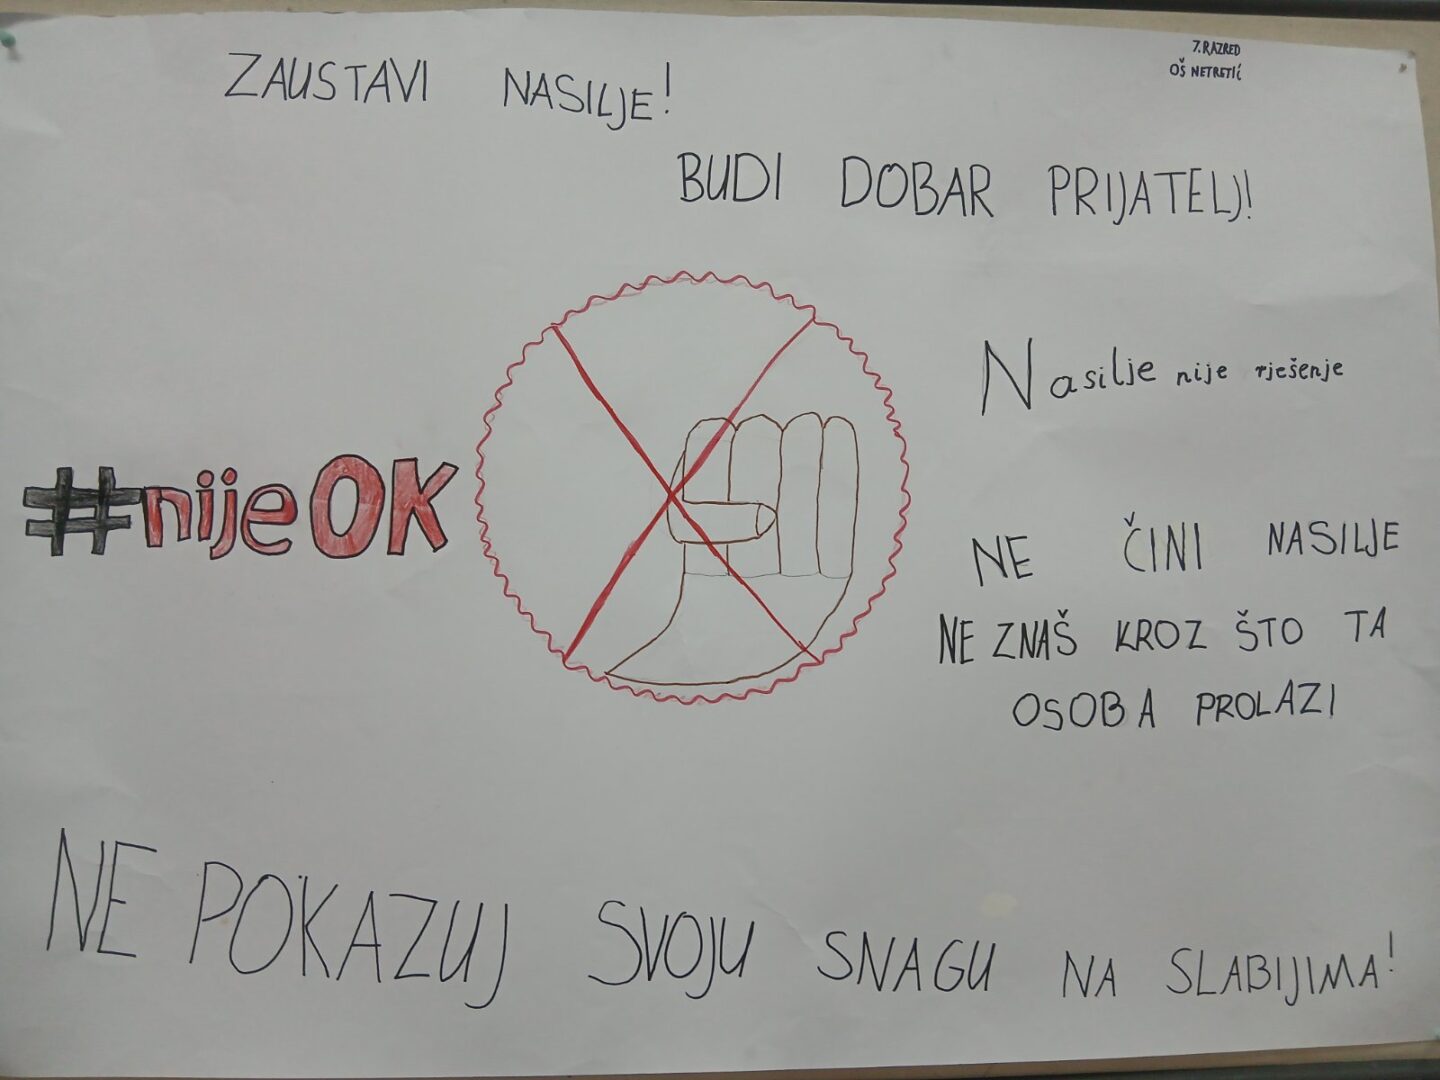 7. RAZRED
OŠ NETRETIĆ
ZAUSTAVI NASILJE!
BUDI DOBAR PRIJATELJ!
Nasilje nije rješenje
#nijeOK
NE ČINI NASILJE
NE ZNAŠ KROZ ŠTO TA
OSOBA PROLAZI
NE POKAZUJ SVOJU SNAGU NA SLABIJIMA!